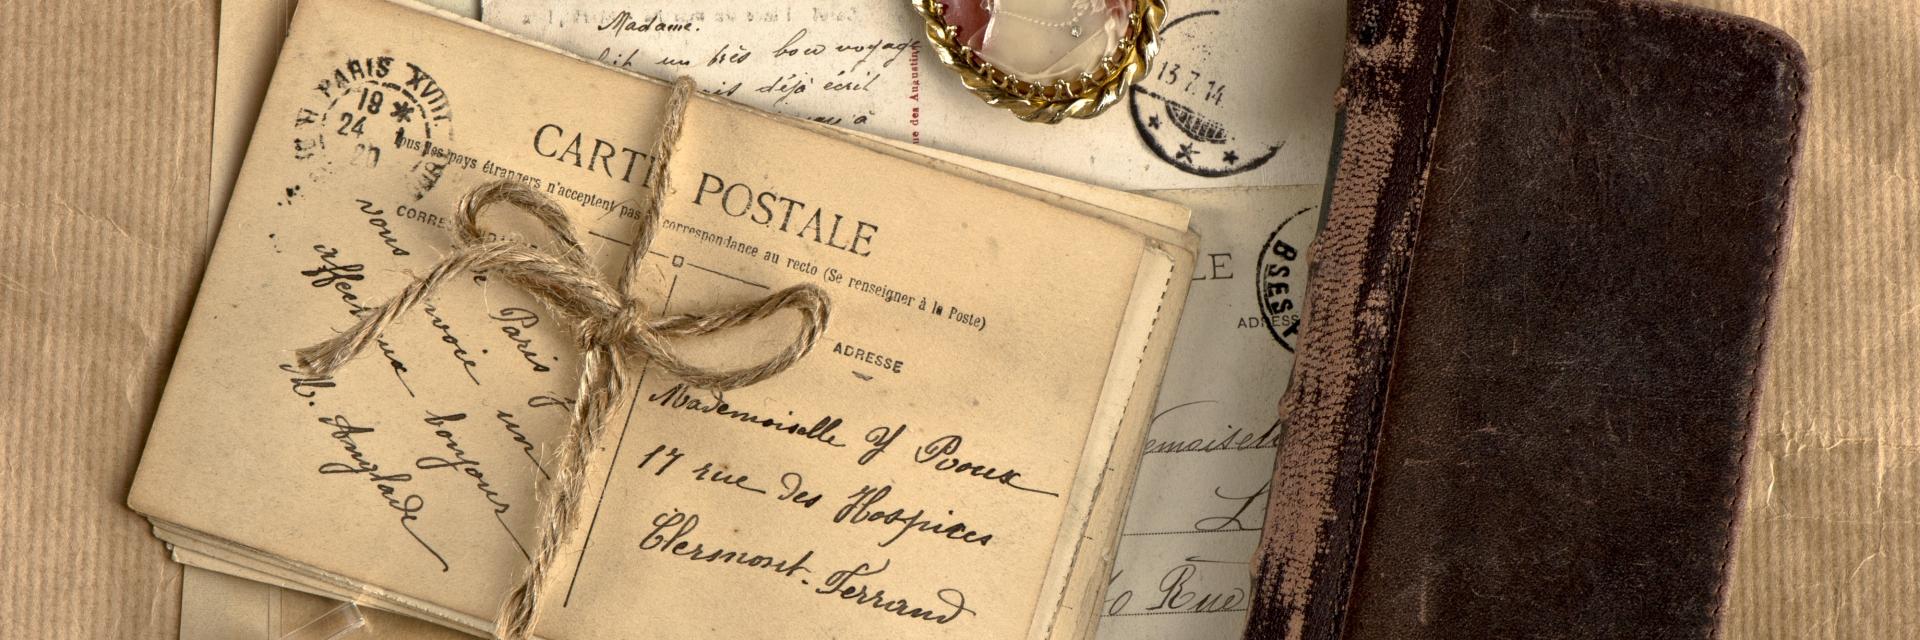 Madame.
un très bon voyage
déjà écrit
à
rue des Augustins
13 7.14
PARIS XVIII
19 *
24
20
CARTE POSTALE
Tous les pays étrangers n'acceptent pas correspondance au recto (Se renseigner à la Poste)
CORRE
ADRESSE
vous
de Paris
envoie un
affectueux bonjour
M. Anglade
Mademoiselle Y Pooux
17 rue des Hospices
Clermont-Ferrand
LE
ADRESS
BSES
emoisell
L
Rue